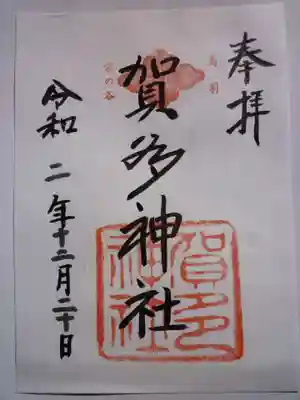 奉拝
鳥羽
賀多神社
賀多
神社
令和二年十二月二十日